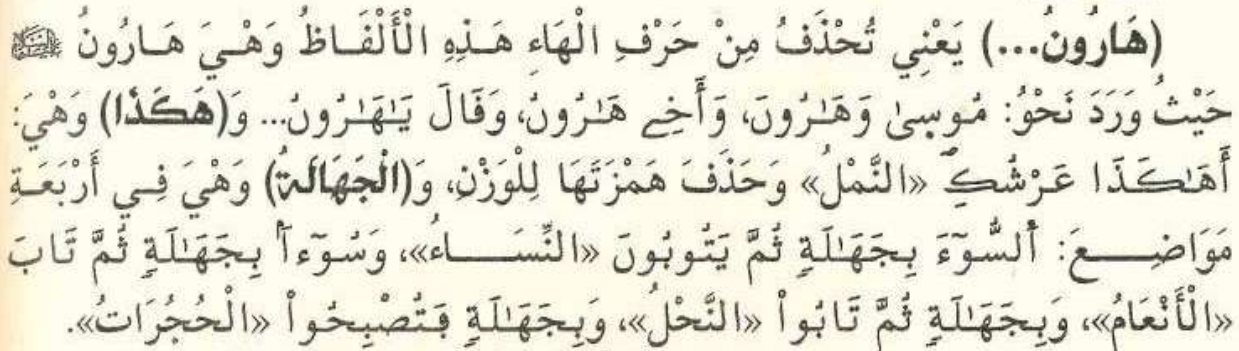 (هَارُونُ...) يَعْنِي تُحْذَفُ مِنْ حَرْفِ الْهَاءِ هَـذِهِ الْأَلْفَـاظُ وَهْـيَ هَـارُونُ ﷺ
حَيْثُ وَرَدَ نَحْوُ: مُوسِىٰ وَهَـٰرُونَ، وَأَخِے هَـٰرُونُ، وَقَالَ يَـٰهَـٰرُونُ... وَ(هَكَذَا) وَهْيَ:
أَهَـٰكَذَا عَرْشُكِ «النَّمْلُ» وَحَذَفَ هَمْزَتَهَا لِلْوَزْنِ، وَ(الْجَهَالَةُ) وَهْيَ فِـي أَرْبَعَـةِ
مَوَاضِـــعَ: اُ۬لسُّوٓءَ بِجَهَـٰلَةٍ ثُمَّ يَتُوبُونَ «النِّسَــاءُ»، وَسُوٓءاً بِجَهَـٰلَةٍ ثُمَّ تَابَ
«الْأَنْعَامُ»، وَبِجَهَـٰلَةٍ ثُمَّ تَابُواْ «النَّحْلُ»، وَبِجَهَـٰلَةٍ فَتُصْبِحُواْ «الْحُجُرَاتُ».